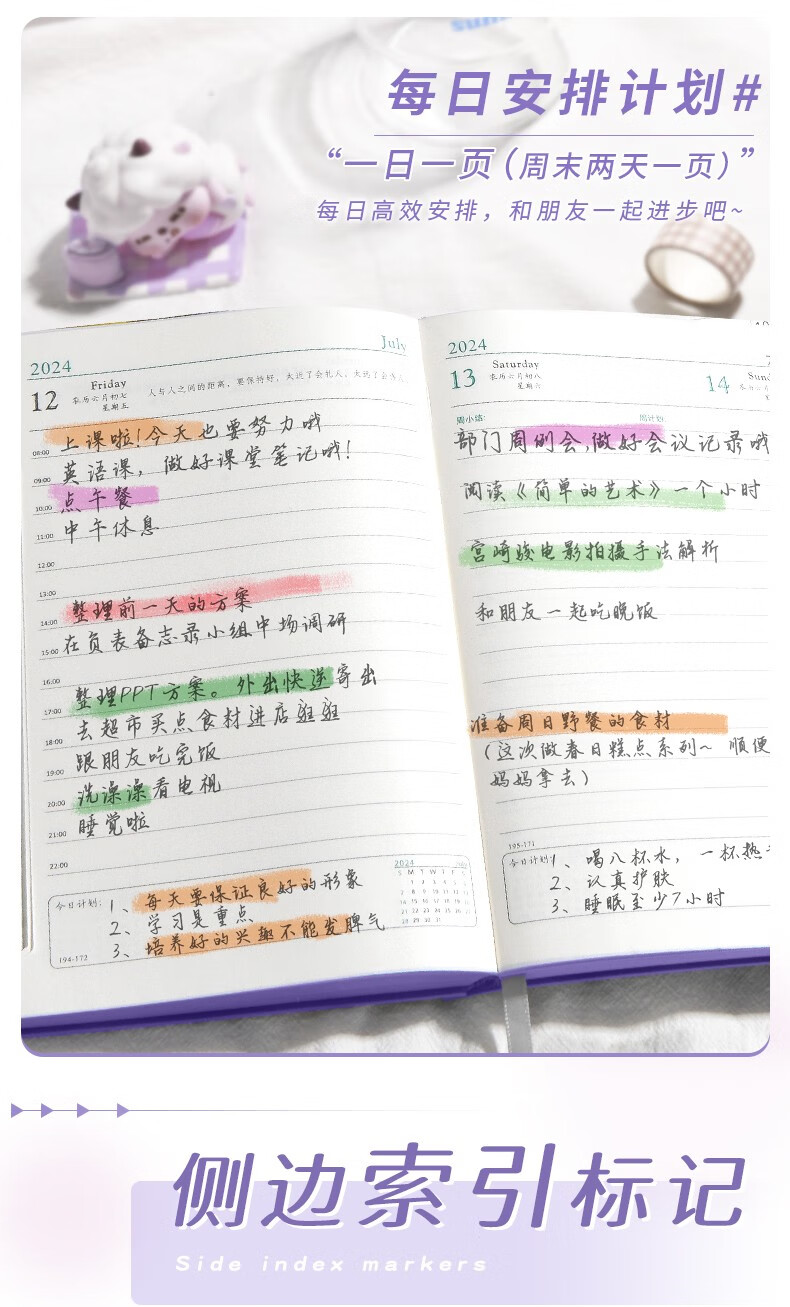 每日安排计划#
“一日一页（周末两天一页）”
每日高效安排，和朋友一起进步吧~
2024 July
12 Friday
农历六月初七
星期五
人与人之间的距离，要保持好，太近了会扎人，太远了会伤人
08:00 上课啦！今天也要努力哦
09:00 英语课，做好课堂笔记哦！
10:00 点午餐
11:00 中午休息
12:00
13:00
14:00 整理前一天的方案
15:00 在负表备志录小组中场调研
16:00
17:00 整理PPT方案。外出快递寄出
18:00 去超市买点食材进店逛逛
19:00 跟朋友吃完饭
20:00 洗澡澡看电视
21:00 睡觉啦
22:00
今日计划：
1、每天要保证良好的形象
2、学习是重点
3、培养好的兴趣不能发脾气
194-172
2024
S M T W T F S
1 2 3 4 5 6
7 8 9 10 11 12 13
14 15 16 17 18 19 20
21 22 23 24 25 26 27
28 29 30 31
2024
13 Saturday
农历六月初八
星期六
14
周小结:
周计划
部门周例会,做好会议记录哦
阅读《简单的艺术》一个小时
宫崎骏电影拍摄手法解析
和朋友一起吃晚饭
准备周日野餐的食材
（这次做春日糕点系列~ 顺便
妈妈拿去）
195-171
今日计划:
1、喝八杯水，一杯热
2、认真护肤
3、睡眠至少7小时
侧边索引标记
Side index markers